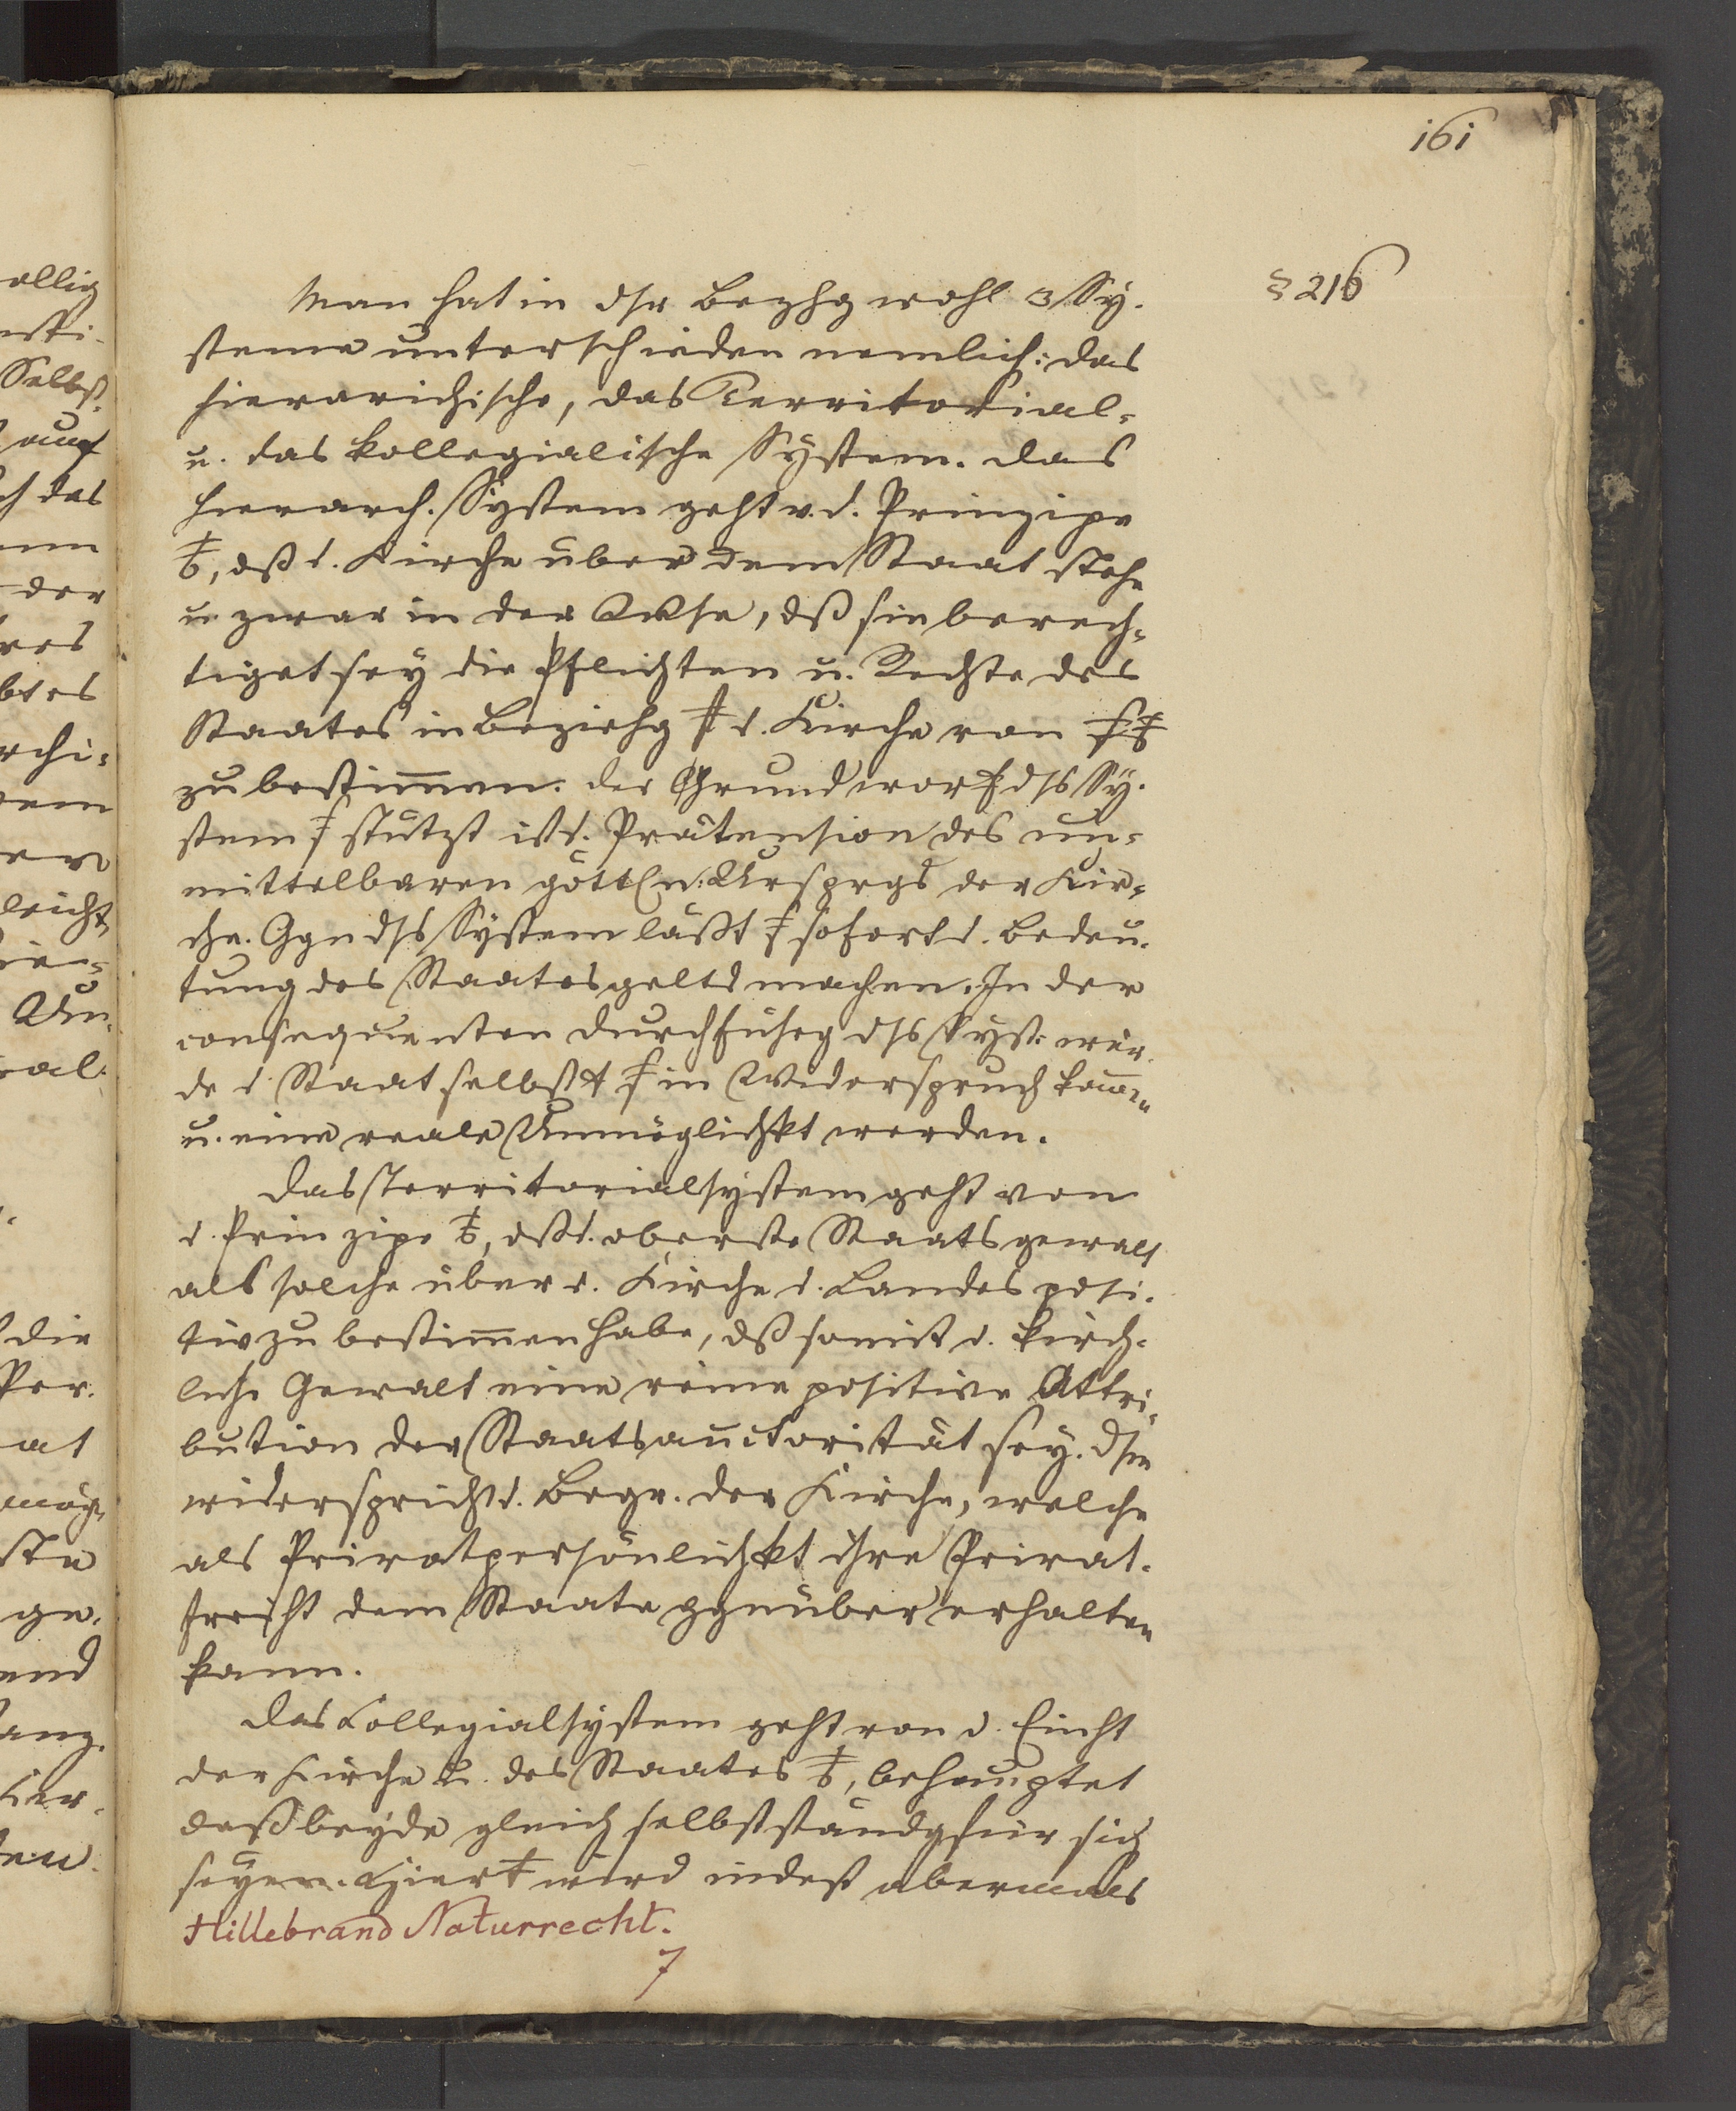 161
§ 216
Man hat in dsr Bezhg wohl 3 Sy-
steme unterschieden nemlich: das
hierarchische, das Territorial-
u. das kollegialische System. das
hierarch. System geht v. d. Prinzipe
dß d. Kirche über dem Staat stehe
u. zwar in der Weise, dß sie berech-
tiget sey die Pflichten u. Rechte des
Staates in Beziehg d. Kirche von
zu bestim̄en. der Grund worf dss Sy-
stem stützt ist d. Prätension des un-
mittelbaren göttln. Ursprgs der Kir-
che. Ggn dss System läßt sofort d. Bedeu-
tung des Staates geltd machen. In der
consequenten Durchführg dss Syst. wür-
de d. Staat selbst in Widerspruch kom̄en
u. eine reale Unmöglichkt werden.
das Territorialsystem geht von
d. Prinzipe dß d. oberste Staatsgewalt
als solche über d. Kirche d. Landes posi-
tiv zu bestim̄en habe, dß somit d. kirch-
liche Gewalt eine reine positive Attri-
bution der Staatsauctorität sey. dsm
widerspricht d. Begr. der Kirche, welche
als Privatpersönlichkt ihre Privat-
freiht dem Staate ggnüber erhalten
kann.
das Collegialsystem geht von d. Einht
der Kirche u. des Staates behauptet
daß beyde gleich selbstständg für sich
seyen. Hier wird indeß abermals
Hillebrand Naturrecht.
7